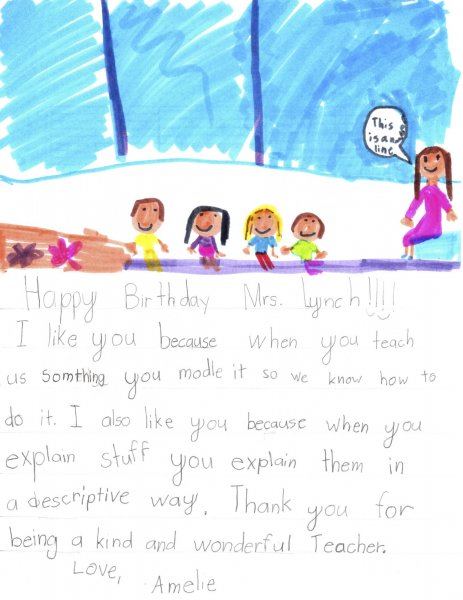 This
is a
line
Happy Birthday Mrs. Lynch!!!!
I like you because when you teach
us somthing you modle it so we know how to
do it. I also like you because when you
explain stuff you explain them in
a descriptive way. Thank you for
being a kind and wonderful Teacher.
Love,
Amelie